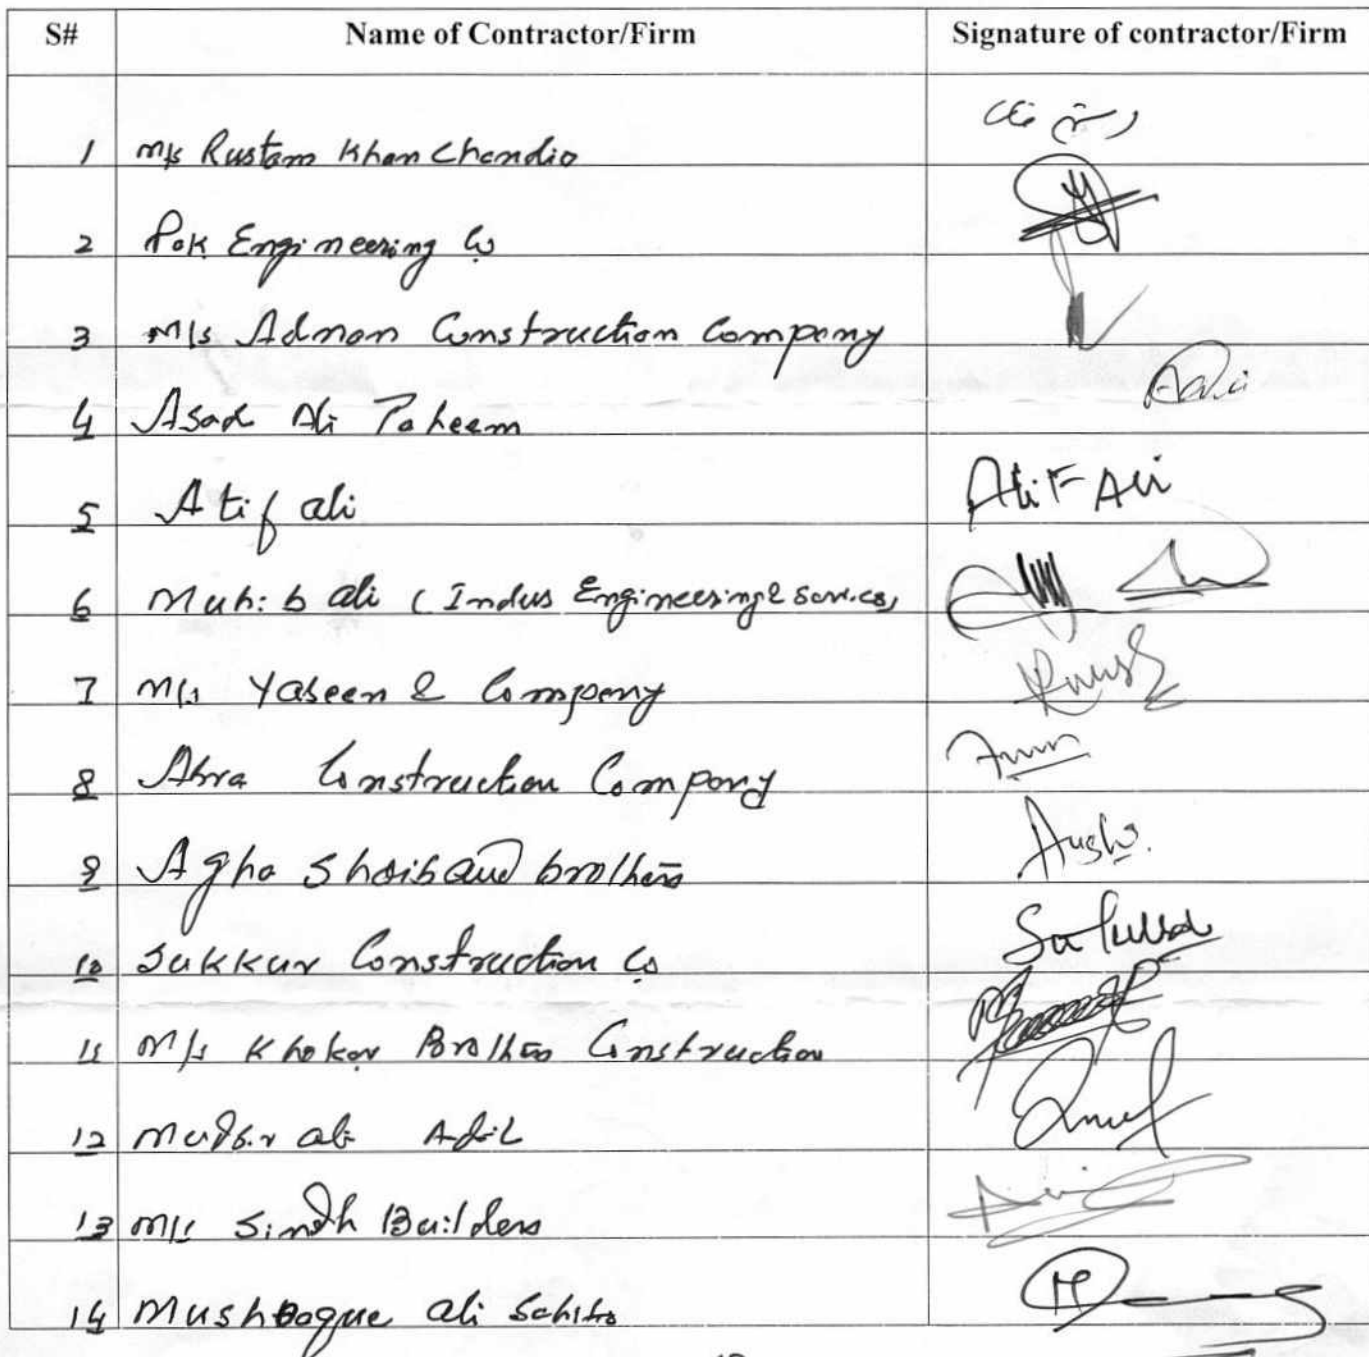 S# Name of Contractor/Firm Signature of contractor/Firm
1 M/s Rustam Khan Chandio رستم خان
2 Pak Engineering Co
3 M/s Adnan Construction Company
4 Asad Ali Paheem
5 Atif ali Atif Ali
6 Muhib ali (Indus Engineering & Services)
7 M/s Yaseen & Company
8 Abra Construction Company
9 Agha Shoib and brothers
10 Sukkur Construction Co
11 M/s Khokar Brothers Construction
12 ali Adil
13 M/s Sindh Builders
14 Mushtaque ali Sahito